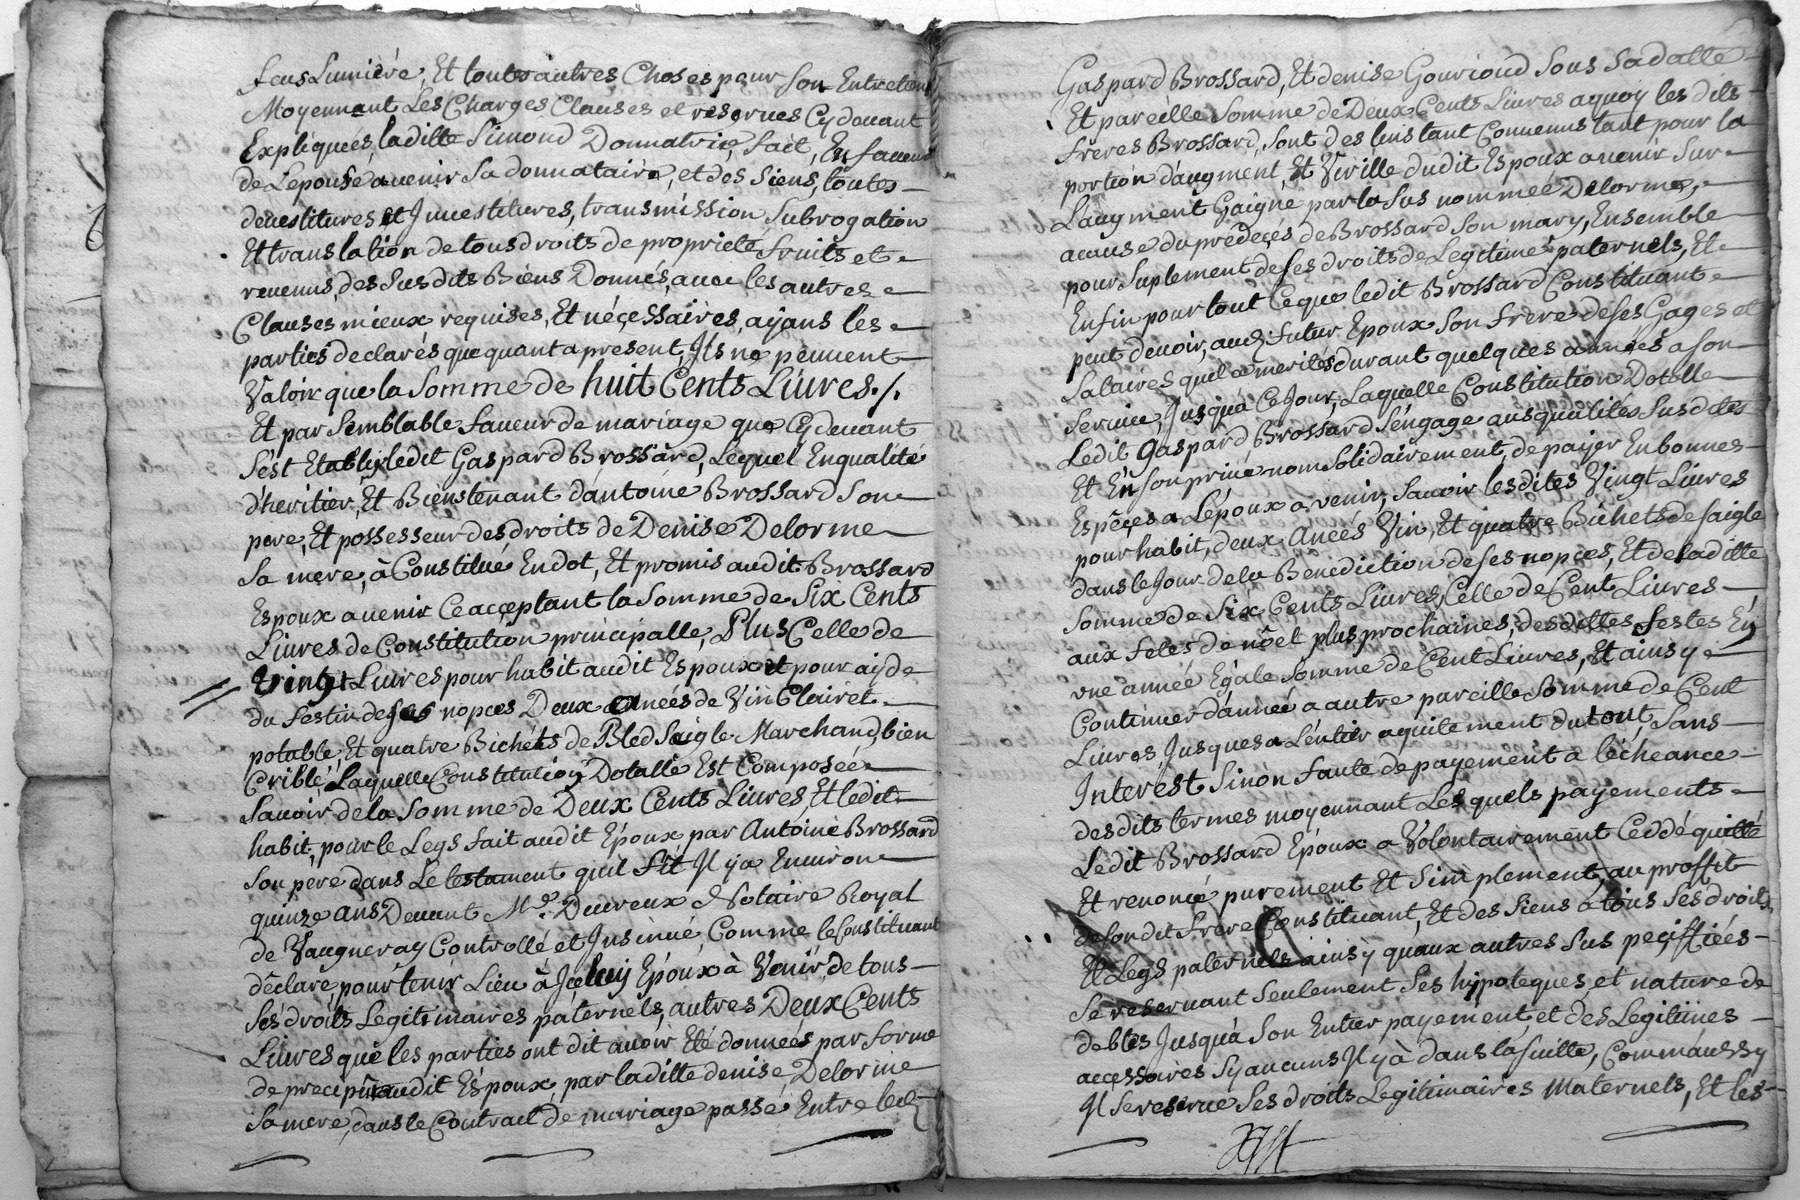 feus Lumiére, Et touttes autres Choses pour son Entretiens
Moyennant Les Charges Clauses et reserues Cy deuant
Expliquéés, laditte Simond Donnatrice fait, En faueur
de Lepouse auenir Sa donnataire, et des Siens, toutes
deuestitures et Jnuestitures, transmission Subrogation
Et translation de tous droits de proprieté fruits et
reuenus, des Susdits Biens Donnés, auec les autres
Clauses mieux requises, Et néçessaires, ayans les
parties declarés que quant a present, Jls ne peuuent
Valoir que la Somme de huit Cents Liures./.
Et par Semblable faueur de mariage que Cy deuant
S'ést Etably ledit Gaspard Brossard, Lequel En qualité
d'heritier, Et Bienstenant d'antoine Brossard Son
pere, Et possesseur des droits de Denise Delorme
Sa mere, à Constitué En dot, Et promis audit Brossard
Espoux auenir Ce acçeptant la Somme de Six Cents
Liures de Constitution principalle, Plus Celle de
Vingt Liures pour habit audit Espoux et pour ayde
du festin de ses nopces Deux anéés de Vin Clairet
potable, Et quatre Bichets de Bled Seigle Marchand, bien
Criblé, Laquelle Constitution Dotalle Est Composéé
Sauoir de la Somme de Deux Cents Liures, Et ledit
habit, pour le Legs fait audit Epoux par Antoine Brossard
Son pere dans Le testament qu'il fit Jl y a Enuiron
quinze ans Deuant Me. Ducreux Notaire Royal
de Vaugneray Controllé et Jnsinué, Comme le Constituant
déclare, pour tenir Lieu à Jceluy Epoux à Venir de tous
Sés droits Legitimaires paternels, autres Deux Cents
Liures que les parties ont dit auoir Eté données par forme
de preciput audit Espoux, par laditte denise Delorme
Sa mere, dans le Contract de mariage passé Entre led.
Gaspard Brossard, Et denise Gourioud Sous Sa datte
Et pareille Somme de Deux Cents Liures a quoy les dits
freres Brossard, Sont des linstant Conuenus tant pour la
portion d'augment, Et Virille dudit Espoux auenir Sur
L'augment Gaigné par la Sus nommeé Delorme,
acause du prédeçés de Brossard Son mary, Ensemble
pour Suplement de Ses droits de Legitimes paternels, Et
Enfin pour tout Ce que ledit Brossard Constituant
peut deuoir, aud. futur Epoux Son frere de Ses Gages et
Salaires qu'il a merités durant quelques annéés a Son
Seruice, Jusqu'a Ce Jour, Laquelle Constitution Dotalle
Ledit Gaspard Brossard S'engage aus qualités Susdites
Et En Son priué nom Solidairement, de payer En bonnes
Espêçes a L'époux a venir, Sauoir lesdites Vingt Liures
pour habit, deux Anéés Vin, Et quatre Bichets de Saigle
dans le Jour de la Benediction de Ses nopces, Et de laditte
Somme de Six Cents Liures, Celle de Cent Liures
aux fetes de nôel plus prochaines, desdittes festes En
vne année Egale Somme de Cent Liures, Et ainsy
Continuer d'année a autre pareille Somme de Cent
Liures, Jusques a L'entier aquitement du tout, Sans
Interest Sinon faute de payement a l'écheance
desdits termes moyennant Lesquels payements
Ledit Brossard Epoux a Volontairement Ceddé quitté
Et renoncé purement Et Simplement, au proffit
de Sondit frere Constituant, Et des Siens à tous Ses droits
Et Legs paternels ainsy qu'aux autres Sus peçiffiées
Se reseruant Seulement Ses hypoteques, et nature de
debtes Jusqu'à Son Entier payement et des Legitimes
acçessoires Sy aucuns Jl y à dans la Suitte, Comm'aussy
Jl Se reserue Ses droits Legitimaires Maternels, Et les